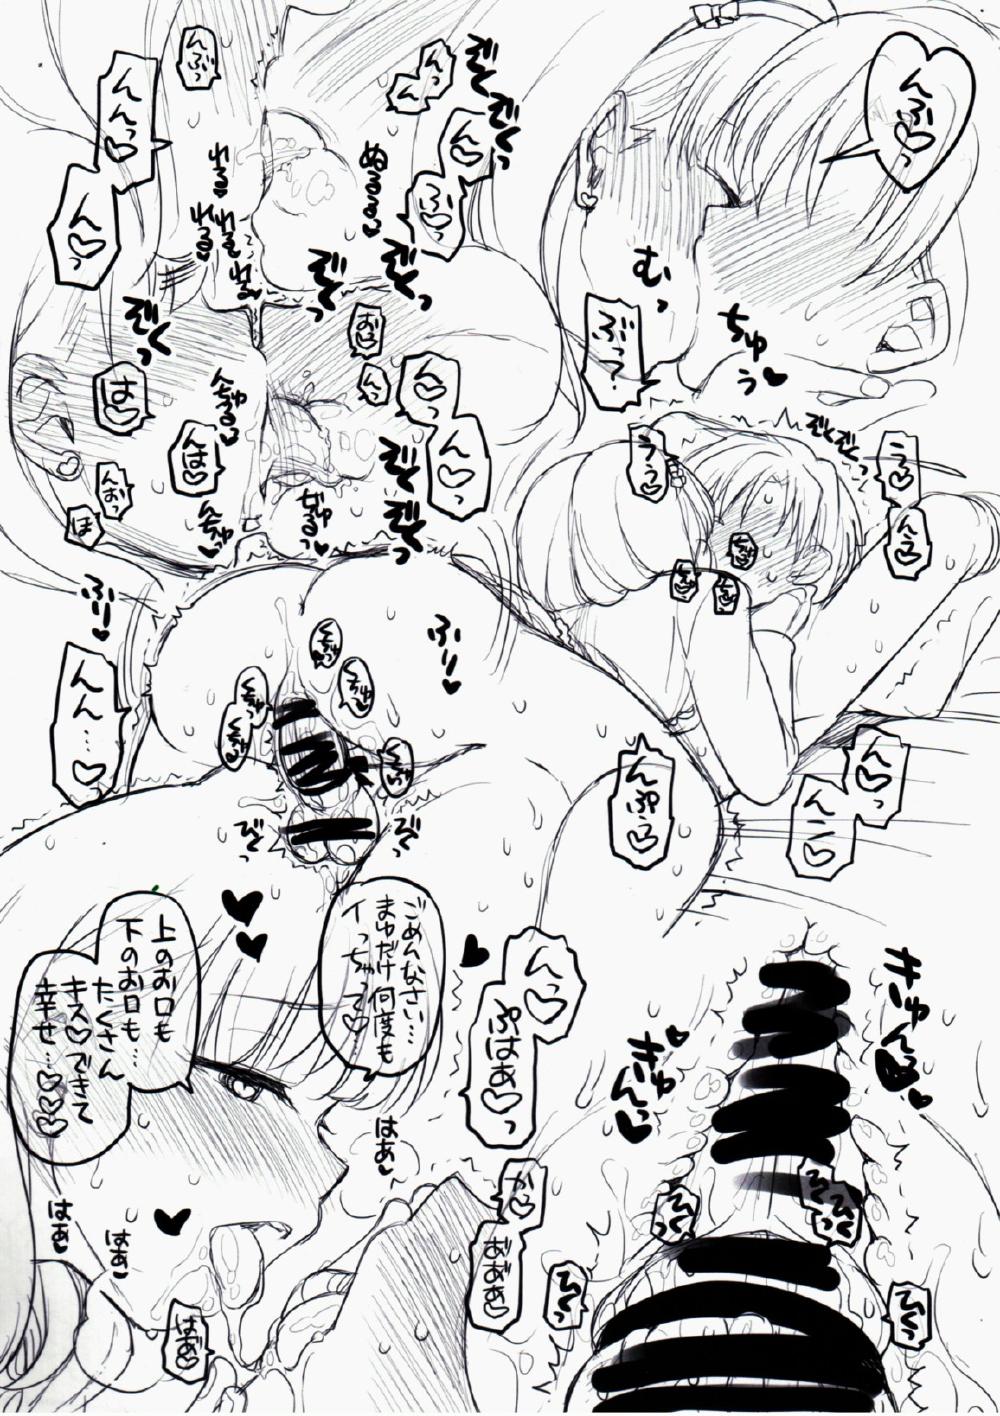 んふ♡っ
むっ
ちゅぅ♥
ぶっ♡
んっ
ん
ん♡
ふ♡っ
ぞくぞくっ
んぶっ
んんっ♡
ん♡っ
ぬるるるっ♥
れる♥
れるれるれる
ぞくっ
ぞくっ
ぞくっ
お♡
んっ
は♡
んちゅるる♥
んは♡
んおっ
ほ
んちゅっ♥
ぢゅるっ♥
ん♡っ
ん♡っ
ぞくっ
ぞくっ
ぞくぞくっ
うぅっ♡
ふりっ♥
ふりっ♥
んん…♡
くちゅっ
くちゅっ
くちゅっ
ん♡っ
んこ♡
びくっ
びくっ
ごめんなさい…
まゆだけ何度も
イっちゃって♡…
上のお口も
下のお口も…
たくさん
キス♡できて
幸せ…♡♡♡
んっ♡
ぷはあ♡っ
きゅんっ♥
きゅんっ♥
はあ♥
はあ♥
はあ♥
はあ♡
か♡っ
あ゛あ゛あ♡
ひくっ
ひくっ
ひくっ
ひくっ